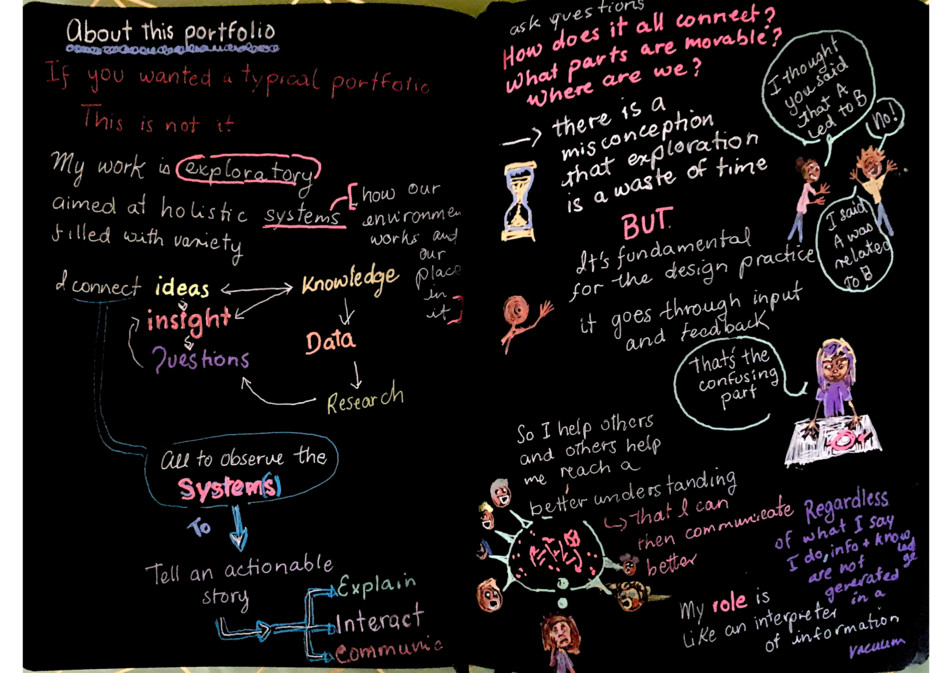 About this portfolio
If you wanted a typical portfolio
This is not it
My work is exploratory
aimed at holistic systems
filled with variety
how our
environmen
works and
our
place
in
it
I connect ideas
insight
Questions
Knowledge
Data
Research
All to observe the
System(s)
To
Tell an actionable
story
Explain
Interact
Communic
ask questions
How does it all connect?
What parts are movable?
Where are we?
there is a
misconception
that exploration
is a waste of time
BUT
It's fundamental
for the design practice
it goes through input
and feedback
I thought
you said
that A
Led to B
No!
I said
A was
related
To B
That's the
confusing
part
So I help others
and others help
me reach a
better understanding
That I can
then communicate
better
Regardless
of what I say
I do, info + knowledge
are not
generated
in a
vacuum
My role is
Like an interpreter
of information